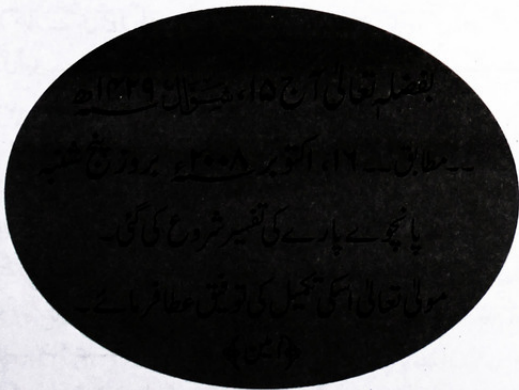 بفضلہ تعالیٰ آج ۱۵، شوال ۱۴۲۹ھ
۔۔ مطابق ۔۔ ۱۶، اکتوبر ۲۰۰۸ء بروز پنج شنبہ
پانچوے پارے کی تفسیر شروع کی گئی۔
مولیٰ تعالیٰ اسکی تکمیل کی توفیق عطا فرمائے۔
﴿امین﴾